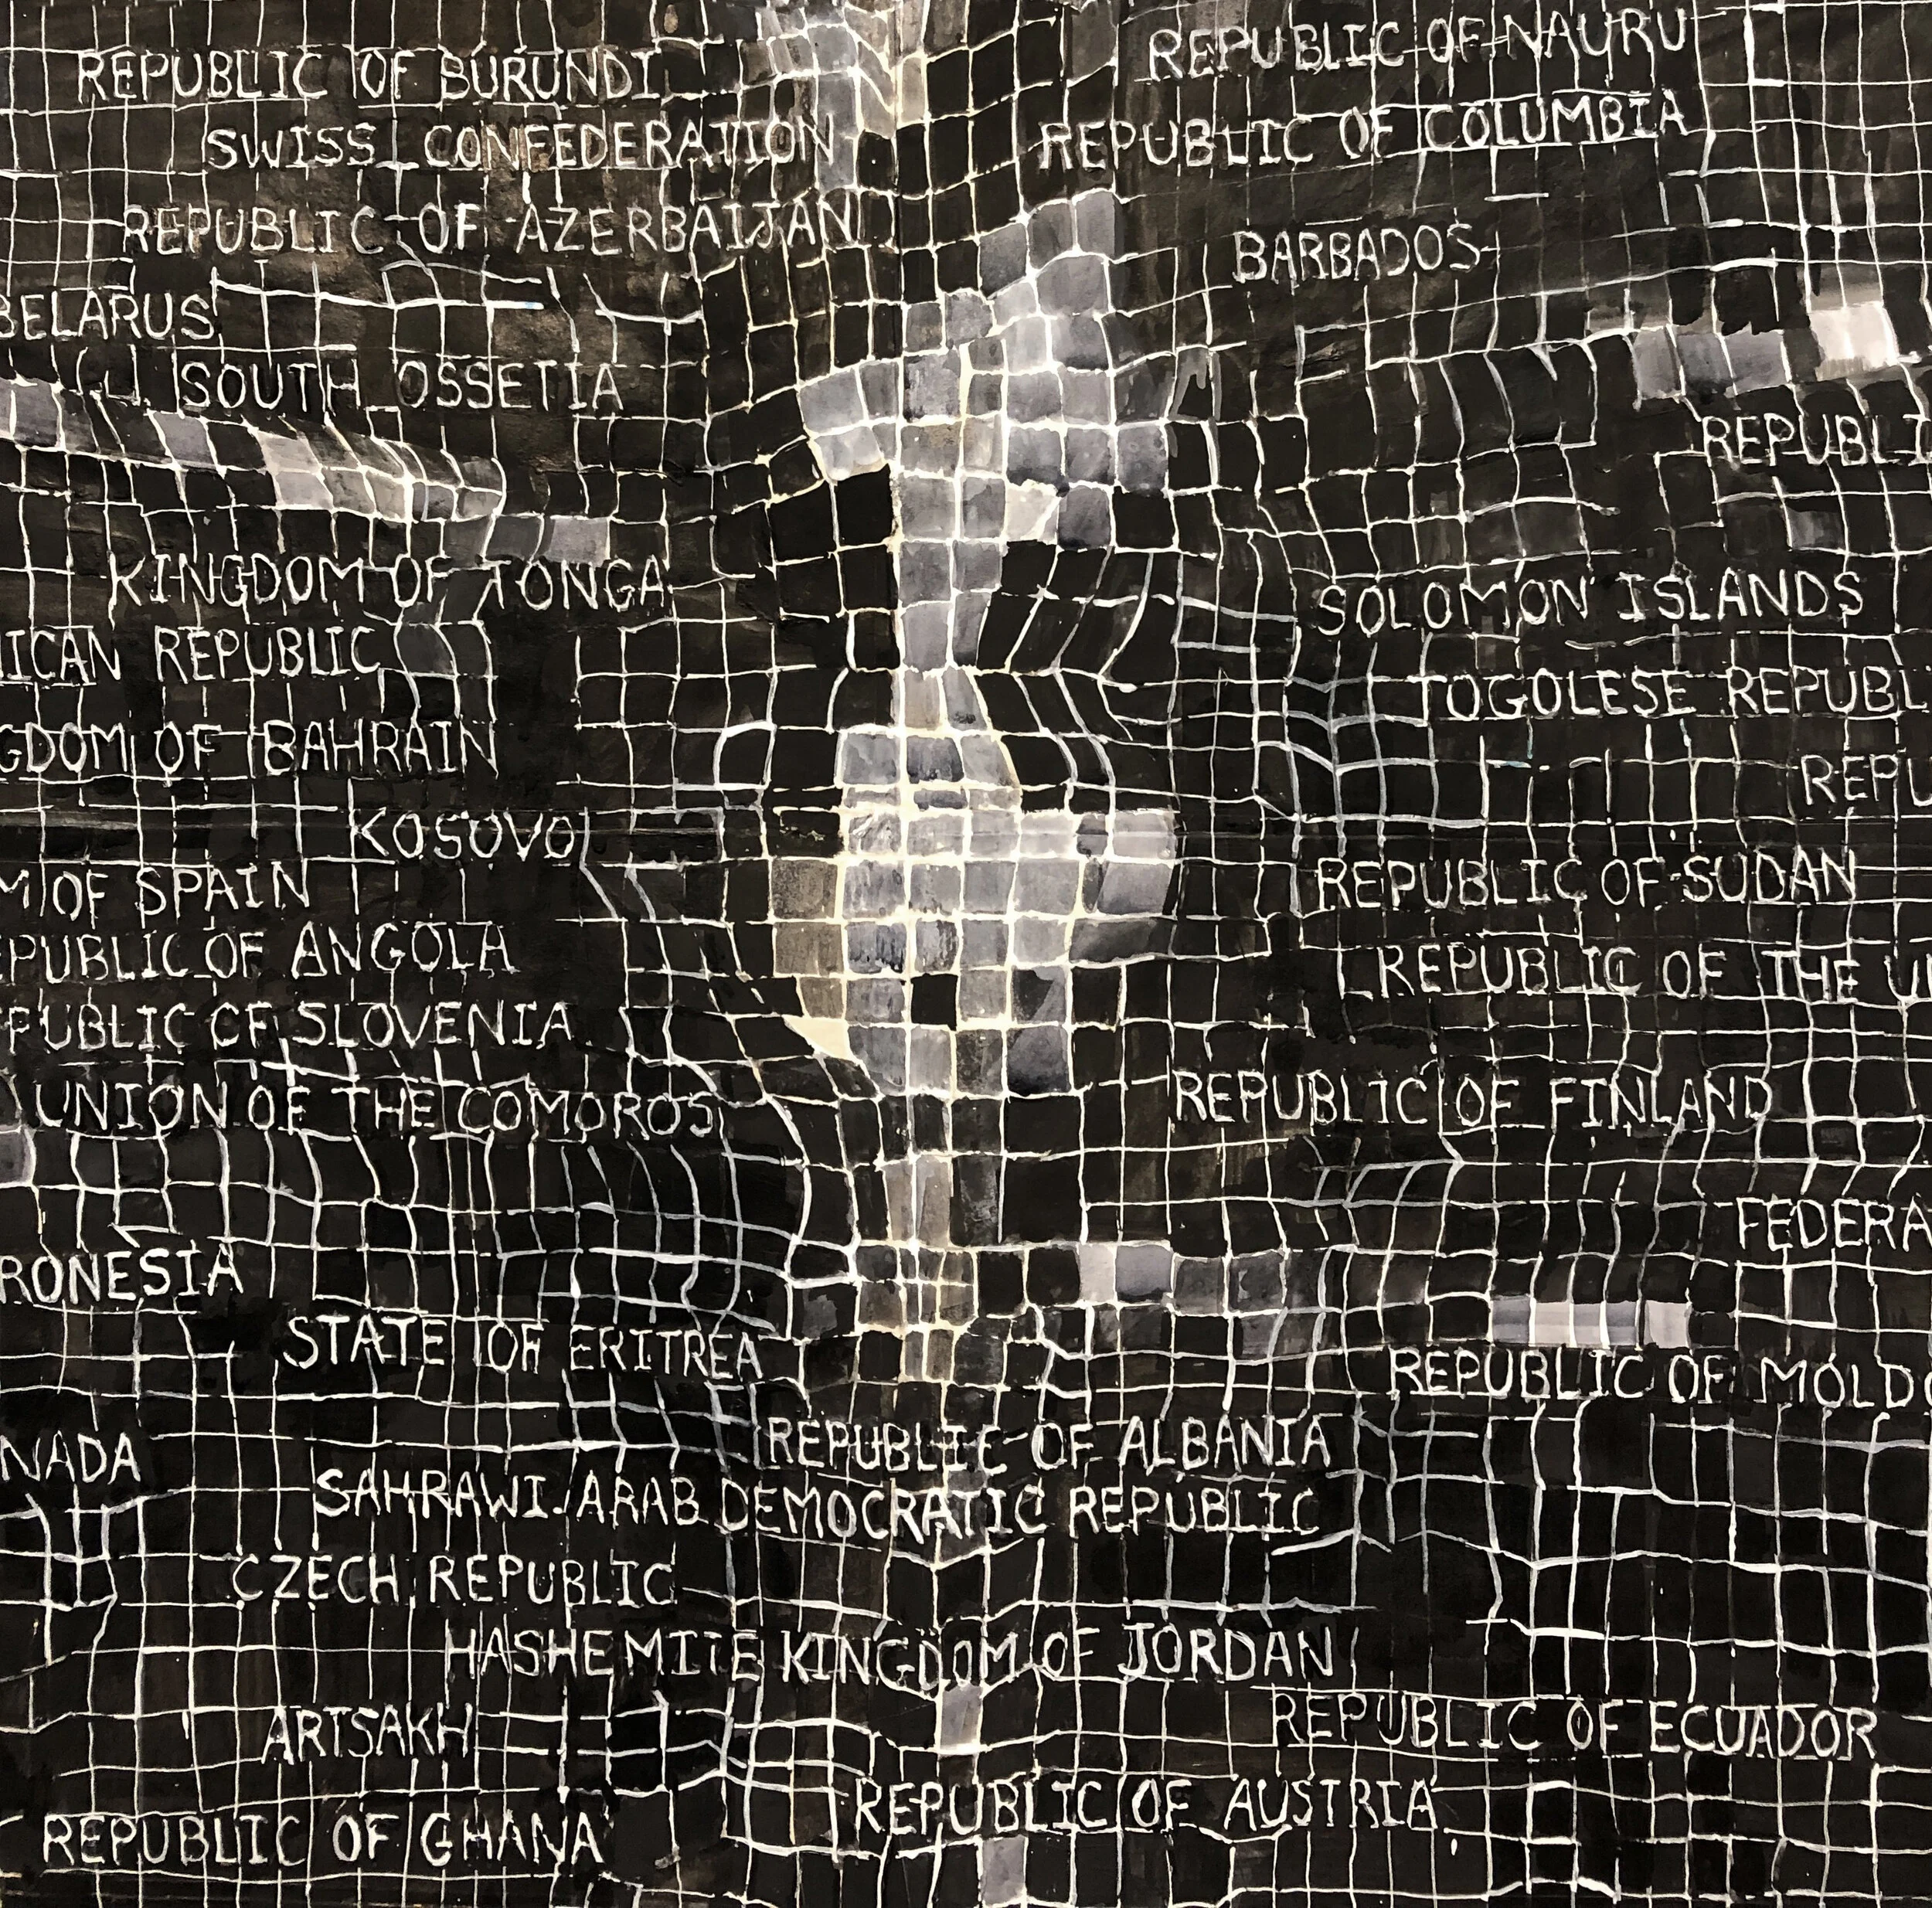 REPUBLIC OF BURUNDI
REPUBLIC OF NAURU
SWISS CONFEDERATION
REPUBLIC OF COLUMBIA
REPUBLIC OF AZERBAIJAN
BARBADOS
BELARUS
SOUTH OSSETIA
REPUBLI
KINGDOM OF TONGA
SOLOMON ISLANDS
ICAN REPUBLIC
TOGOLESE REPUBL
GDOM OF BAHRAIN
REPU
KOSOVO
M OF SPAIN
REPUBLIC OF SUDAN
EPUBLIC OF ANGOLA
REPUBLIC OF THE U
PUBLIC OF SLOVENIA
UNION OF THE COMOROS
REPUBLIC OF FINLAND
FEDERA
RONESIA
STATE OF ERITREA
REPUBLIC OF MOLDO
NADA
REPUBLIC OF ALBANIA
SAHRAWI ARAB DEMOCRATIC REPUBLIC
CZECH REPUBLIC
HASHEMITE KINGDOM OF JORDAN
ARTSAKH
REPUBLIC OF ECUADOR
REPUBLIC OF AUSTRIA
REPUBLIC OF GHANA